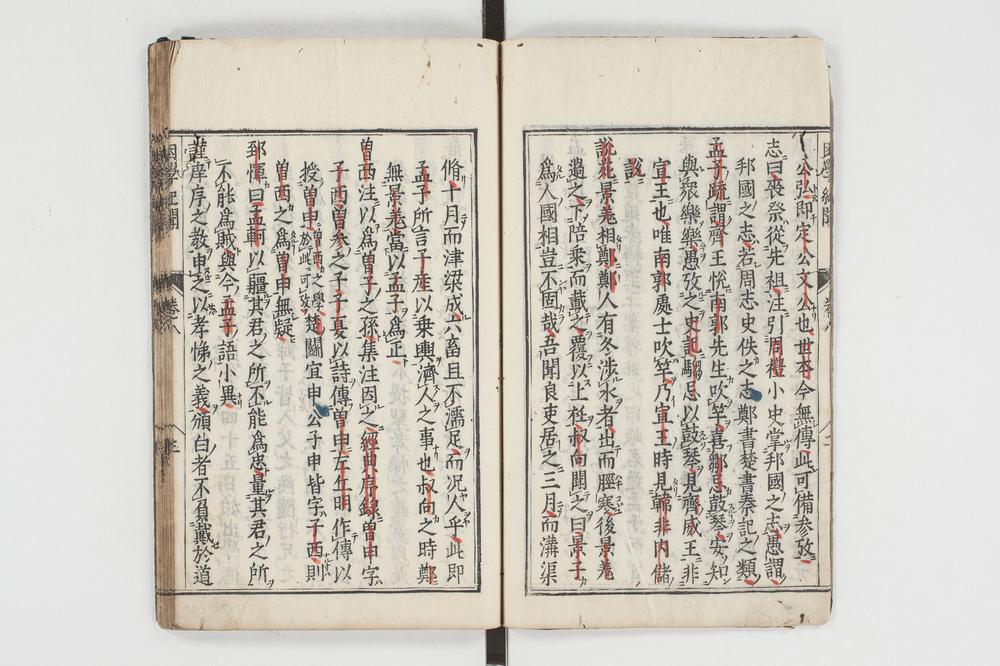 公弘即定公文公也世本今無傳此可備參攷
志曰喪祭從先祖注引周禮小史掌邦國之志愚謂
邦國之志若周志史佚之志鄭書楚書秦記之類
孟子疏謂齊王悅南郭先生吹竽喜鄒忌鼓琴安知
與衆樂樂愚攷之史記騶忌以鼓琴見齊威王非
宣王也唯南郭處士吹竽乃宣王時見韓非内儲
說
說苑景差相鄭鄭人有冬涉水者出而脛寒後景差
過之下陪乘而載之覆以上衽叔向聞之曰景子
爲人國相豈不固哉吾聞良吏居之三月而溝渠
脩十月而津梁成六畜且不濡足而况人乎此即
孟子所言子產以乘輿濟人之事也叔向之時鄭
無景差當以孟子爲正
曾西注以爲曾子之孫集注因之經典序録曾申字
子西曾參之子子夏以詩傳曾申左丘明作傳以
授曾申曾西之學於此可攷楚鬭宜申公子申皆字子西則
曾西之爲曾申無疑
郅惲曰孟軻以彊其君之所不能爲忠量其君之所
不能爲賊與今孟子語小異
謹庠序之教申之以孝悌之義頒白者不負戴於道
困學紀聞
卷八